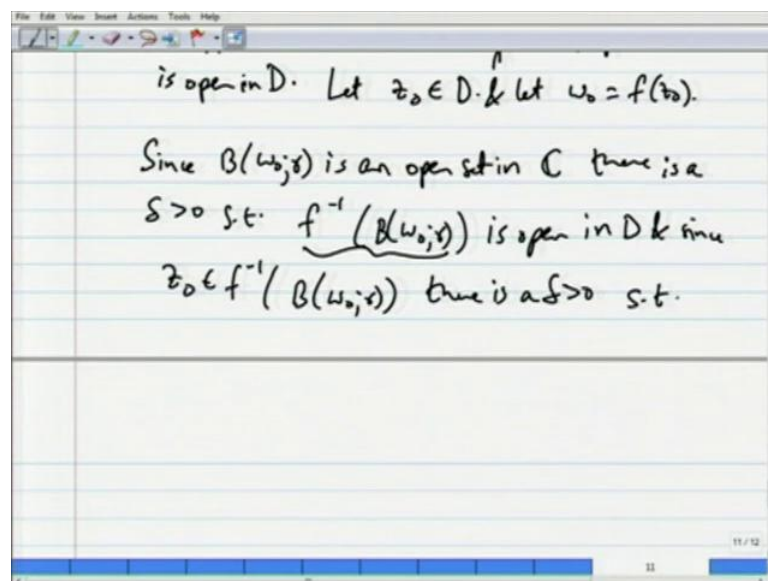 File Edit View Insert Actions Tools Help
is open in D. Let z₀ ∈ D. & let ω₀ = f(z₀).
Since B(ω₀;r) is an open set in ℂ there is a
δ>0 s.t. f⁻¹(B(ω₀;r)) is open in D & since
z₀ ∈ f⁻¹(B(ω₀;r)) there is a δ>0 s.t.
11 / 12
11